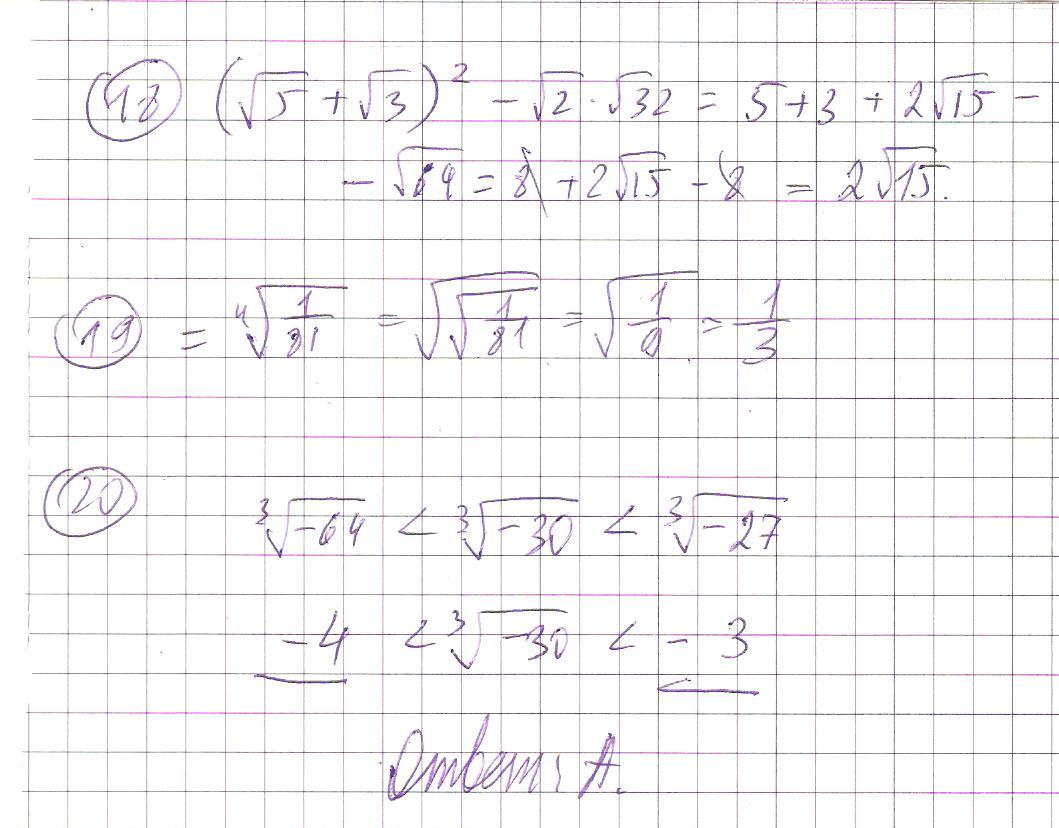 18 (√5 + √3)² - √2 · √32 = 5 + 3 + 2√15 -
- √64 = 8 + 2√15 - 8 = 2√15.
19 = ⁴√(1/81) = √√(1/81) = √(1/9) = 1/3
20
³√-64 < ³√-30 < ³√-27
-4 < ³√-30 < -3
Ответ: А.